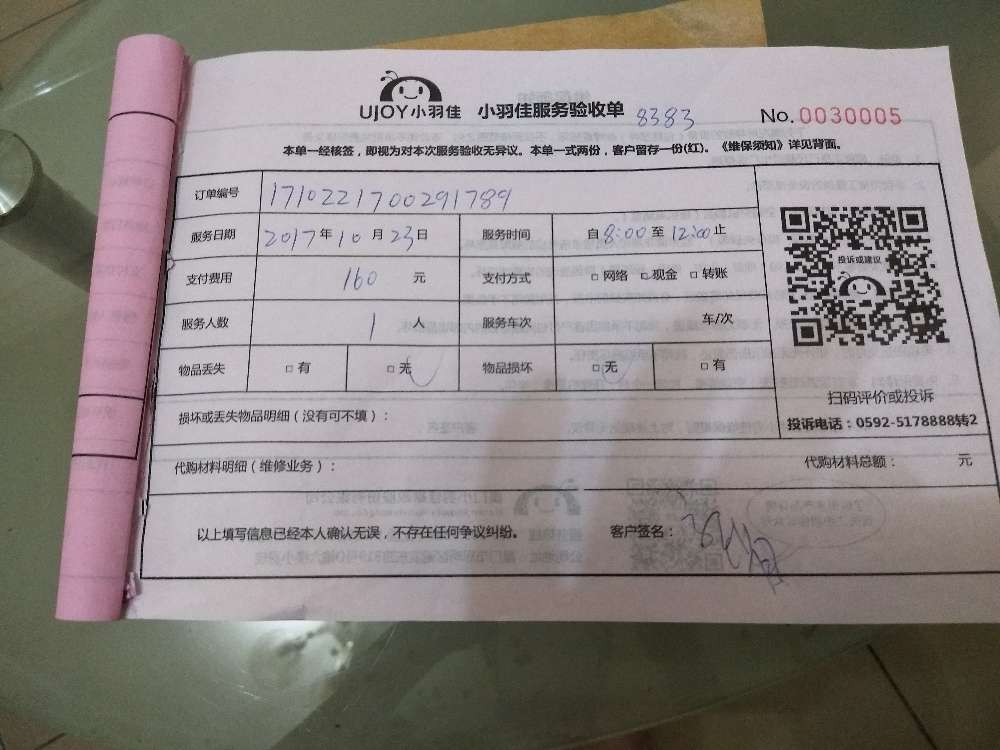 UJOY小羽佳 小羽佳服务验收单 8383 No.0030005
本单一经核签，即视为对本次服务验收无异议。本单一式两份，客户留存一份(红)。《维保须知》详见背面。
订单编号 1710221700291789
服务日期 2017年10月23日 服务时间 自8:00至12:00止
支付费用 160 元 支付方式 □网络 □现金 □转账
投诉或建议
服务人数 1 人 服务车次 车/次
物品丢失 □有 □无 物品损坏 □无 □有
扫码评价或投诉
损坏或丢失物品明细（没有可不填）：
投诉电话：0592-5178888转2
代购材料明细（维修业务）： 代购材料总额： 元
以上填写信息已经本人确认无误，不存在任何争议纠纷。 客户签名：